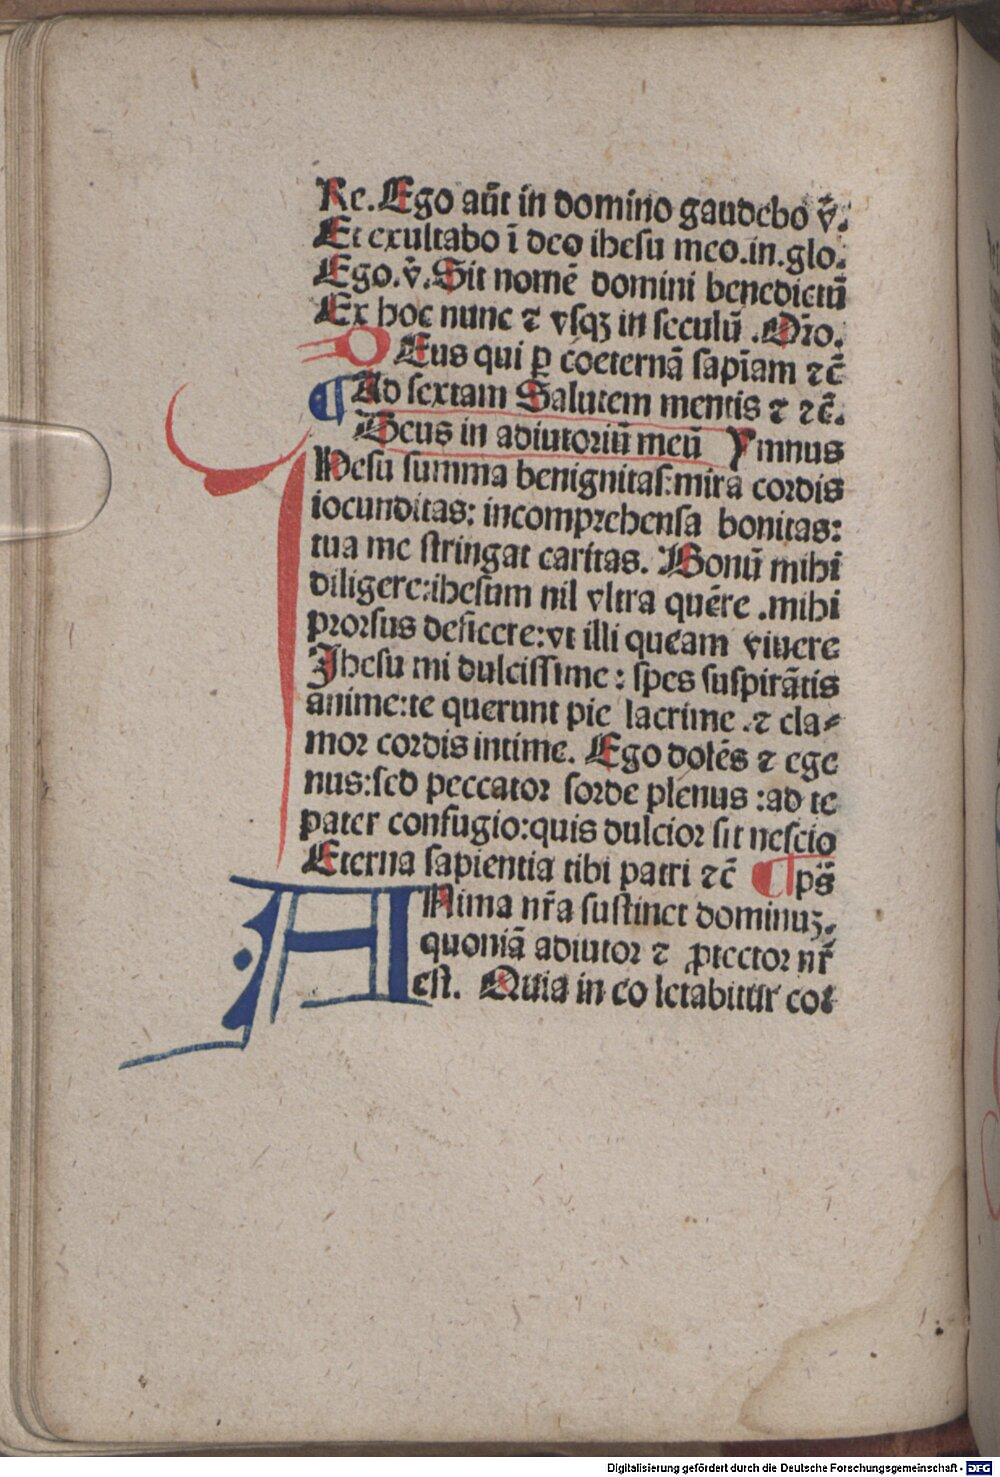 Re. Ego aūt in domino gaudebo v̄.
Et exultabo ī deo ihesu meo.in.glo.
Ego.v̄. Sit nomē domini benedictū
Ex hoc nunc ⁊ vsqꝫ in seculū .Oꝛ̄o.
DEus qui ꝑ coeternā sapīam ⁊c̄
¶ Ad sextam Salutem mentis ⁊ ⁊c̄.
Deus in adiutoriū meū Ymnus
IHesu summa benignitas:mira coꝛdis
iocunditas: incompꝛehensa bonitas:
tua me stringat caritas. Bonū mihi
diligere:ihesum nil vltra quēre .mihi
pꝛoꝛsus deficere:vt illi queam viuere
Jhesu mi dulcissime : spes suspirātis
anime:te querunt pie lacrime .⁊ cla⸗
moꝛ coꝛdis intime. Ego dolēs ⁊ ege
nus:sed peccatoꝛ soꝛde plenus :ad te
pater confugio:quis dulcioꝛ sit nescio
Eterna sapientia tibi patri ⁊c̄ ¶ ps̄
ANima nr̄a sustinet dominuꝫ.
quoniā adiutoꝛ ⁊ ꝓtectoꝛ nr̄
est. Quia in eo letabitur coꝛ
Digitalisierung gefördert durch die Deutsche Forschungsgemeinschaft - DFG